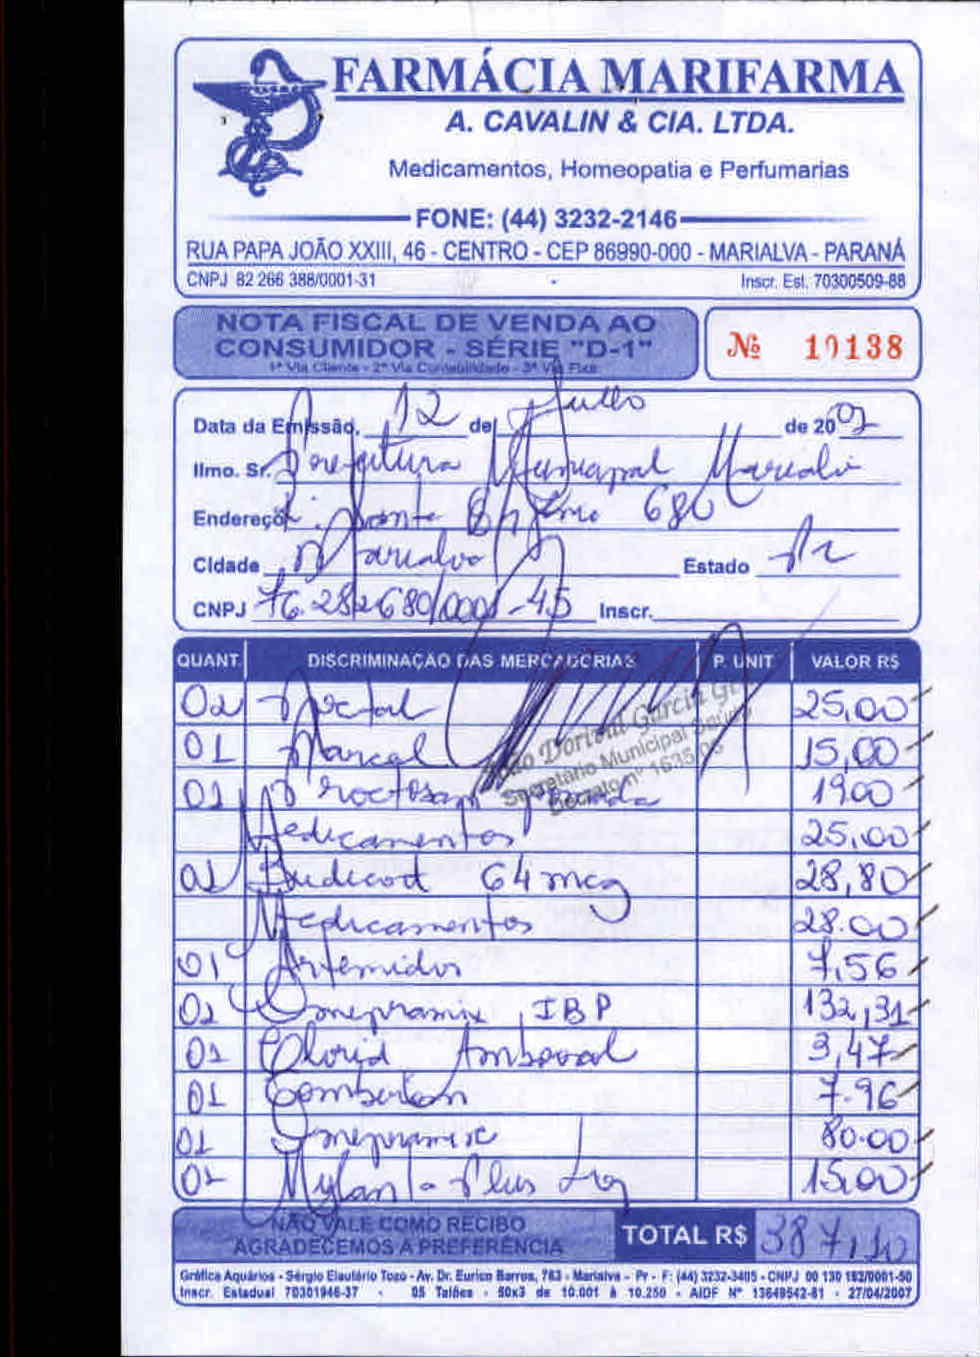 FARMÁCIA MARIFARMA
A. CAVALIN & CIA. LTDA.
Medicamentos, Homeopatia e Perfumarias
FONE: (44) 3232-2146
RUA PAPA JOÃO XXIII, 46 - CENTRO - CEP 86990-000 - MARIALVA - PARANÁ
CNPJ 82 266 388/0001-31 Inscr. Est. 70300509-88
NOTA FISCAL DE VENDA AO
CONSUMIDOR - SÉRIE "D-1"
1ª Via Cliente - 2ª Via Contabilidade - 3ª Via Fixa
Nº 10138
Data da Emissão, 12 de Julho de 2007
Ilmo. Sr. Prefeitura Municipal Marialva
Endereço Santa 680
Cidade Marialva Estado Pr
CNPJ 76.282680/0001-45 Inscr.
QUANT. DISCRIMINAÇÃO DAS MERCADORIAS P. UNIT VALOR R$
02 25,00
01 15,00
01 Proctosan Pomada 19,00
Medicamentos 25,00
01 Budecort 64 mcg 28,80
Medicamentos 28.00
01 Artemidis 7,56
01 Omepramix IBP 132,31
01 Clorid Ambroxol 3,47
01 7.96
01 Omepramix 80.00
01 Mylanta Plus 15,00
João Dorival Garcia
Secretário Municipal Saúde
Decreto nº 1635/05
NÃO VALE COMO RECIBO
AGRADECEMOS A PREFERÊNCIA
TOTAL R$ 387,10
Gráfica Aquários - Sérgio Elautério Tozo - Av. Dr. Eurico Barros, 763 - Marialva - Pr - F: (44) 3232-3405 - CNPJ 00 130 182/0001-50
Inscr. Estadual 70301946-37 - 05 Talões - 50x3 de 10.001 à 10.250 - AIDF Nº 13649542-81 - 27/04/2007